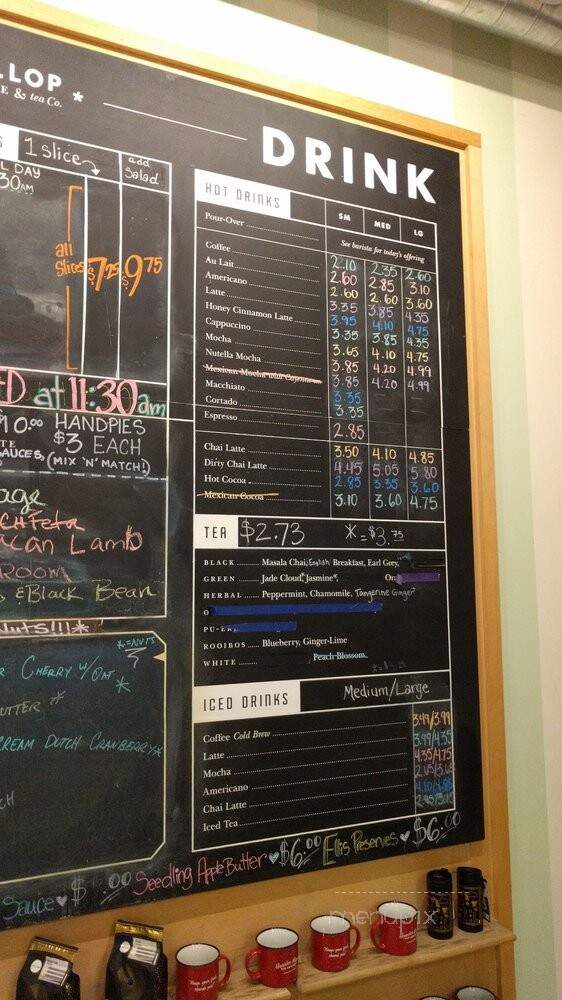 LLOP
E & tea Co. *
DRINK
1 slice
add salad
L DAY
30AM
all slices
$7.25
$9.75
ED at 11:30am
$10.00 HANDPIES
$3 EACH
SAUCES, (MIX 'N' MATCH!)
age
Feta
can Lamb
ROOM
s & Black Bean
Nuts!!*
*=NUTS
R CHERRY W/OAT *
UTTER *
CREAM DUTCH CRANBERRY*
CH
HOT DRINKS SM MED LG
Pour-Over See barista for today's offering
Coffee 2.10 2.35 2.60
Au Lait 2.60 2.85 3.10
Americano 2.60 2.60 3.60
Latte 3.35 3.85 4.35
Honey Cinnamon Latte 3.95 4.10 4.75
Cappuccino 3.35 3.85 4.35
Mocha 3.65 4.10 4.75
Nutella Mocha 3.85 4.20 4.99
Mexican Mocha with Cayenne 3.85 4.20 4.99
Macchiato 3.35
Cortado 3.35
Espresso 2.85
Chai Latte 3.50 4.10 4.85
Dirty Chai Latte 4.45 5.05 5.80
Hot Cocoa 2.85 3.35 3.60
Mexican Cocoa 3.10 3.60 4.75
TEA $2.73 * = $3.75
BLACK Masala Chai, English Breakfast, Earl Grey,
GREEN Jade Cloud* Jasmine*,
HERBAL Peppermint, Chamomile, Tangerine Ginger
O
PU-ER
ROOIBOS Blueberry, Ginger-Lime
WHITE Peach Blossom
ICED DRINKS Medium/Large
Coffee Cold Brew 3.49/3.99
Latte 3.99/4.35
Mocha 4.35/4.75
Americano
Chai Latte
Iced Tea
Sauce ♥ $ .00 Seedling Apple Butter ♥ $6.00 Ellis Preserves ♥ $6.00
menupix